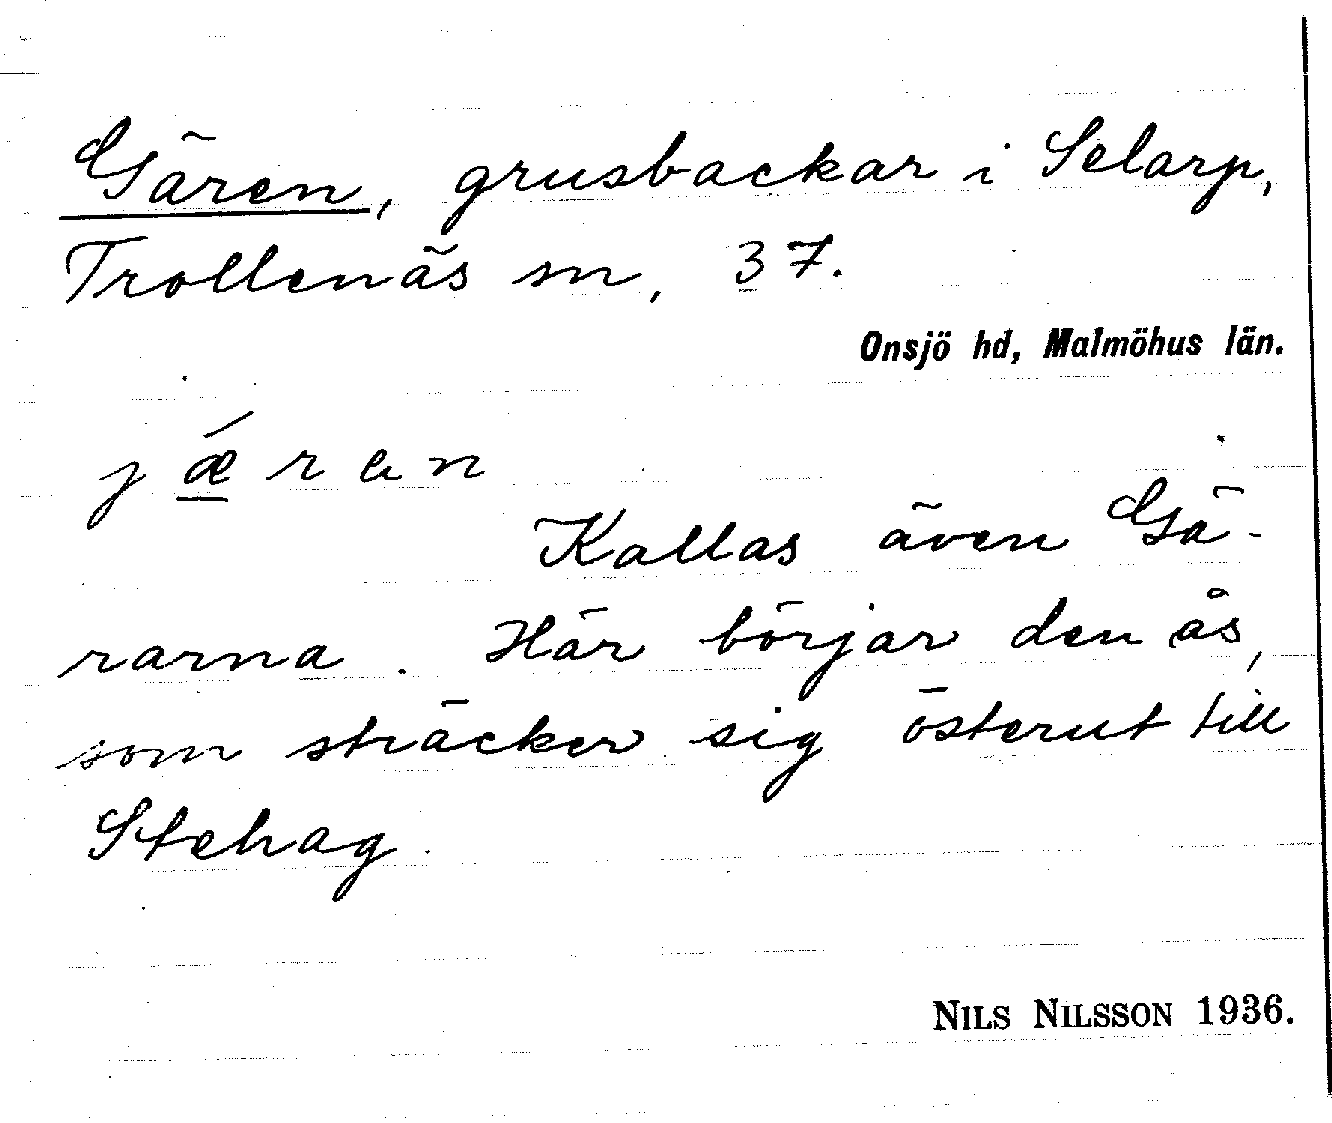 Gären, grusbackar i Selarp,
Trollenäs sn, 37.
Onsjö hd, Malmöhus län.
j ǽ r a n
Kallas även Gä-
rarna. Här börjar den ås,
som sträcker sig österut till
Stehag.
NILS NILSSON 1936.